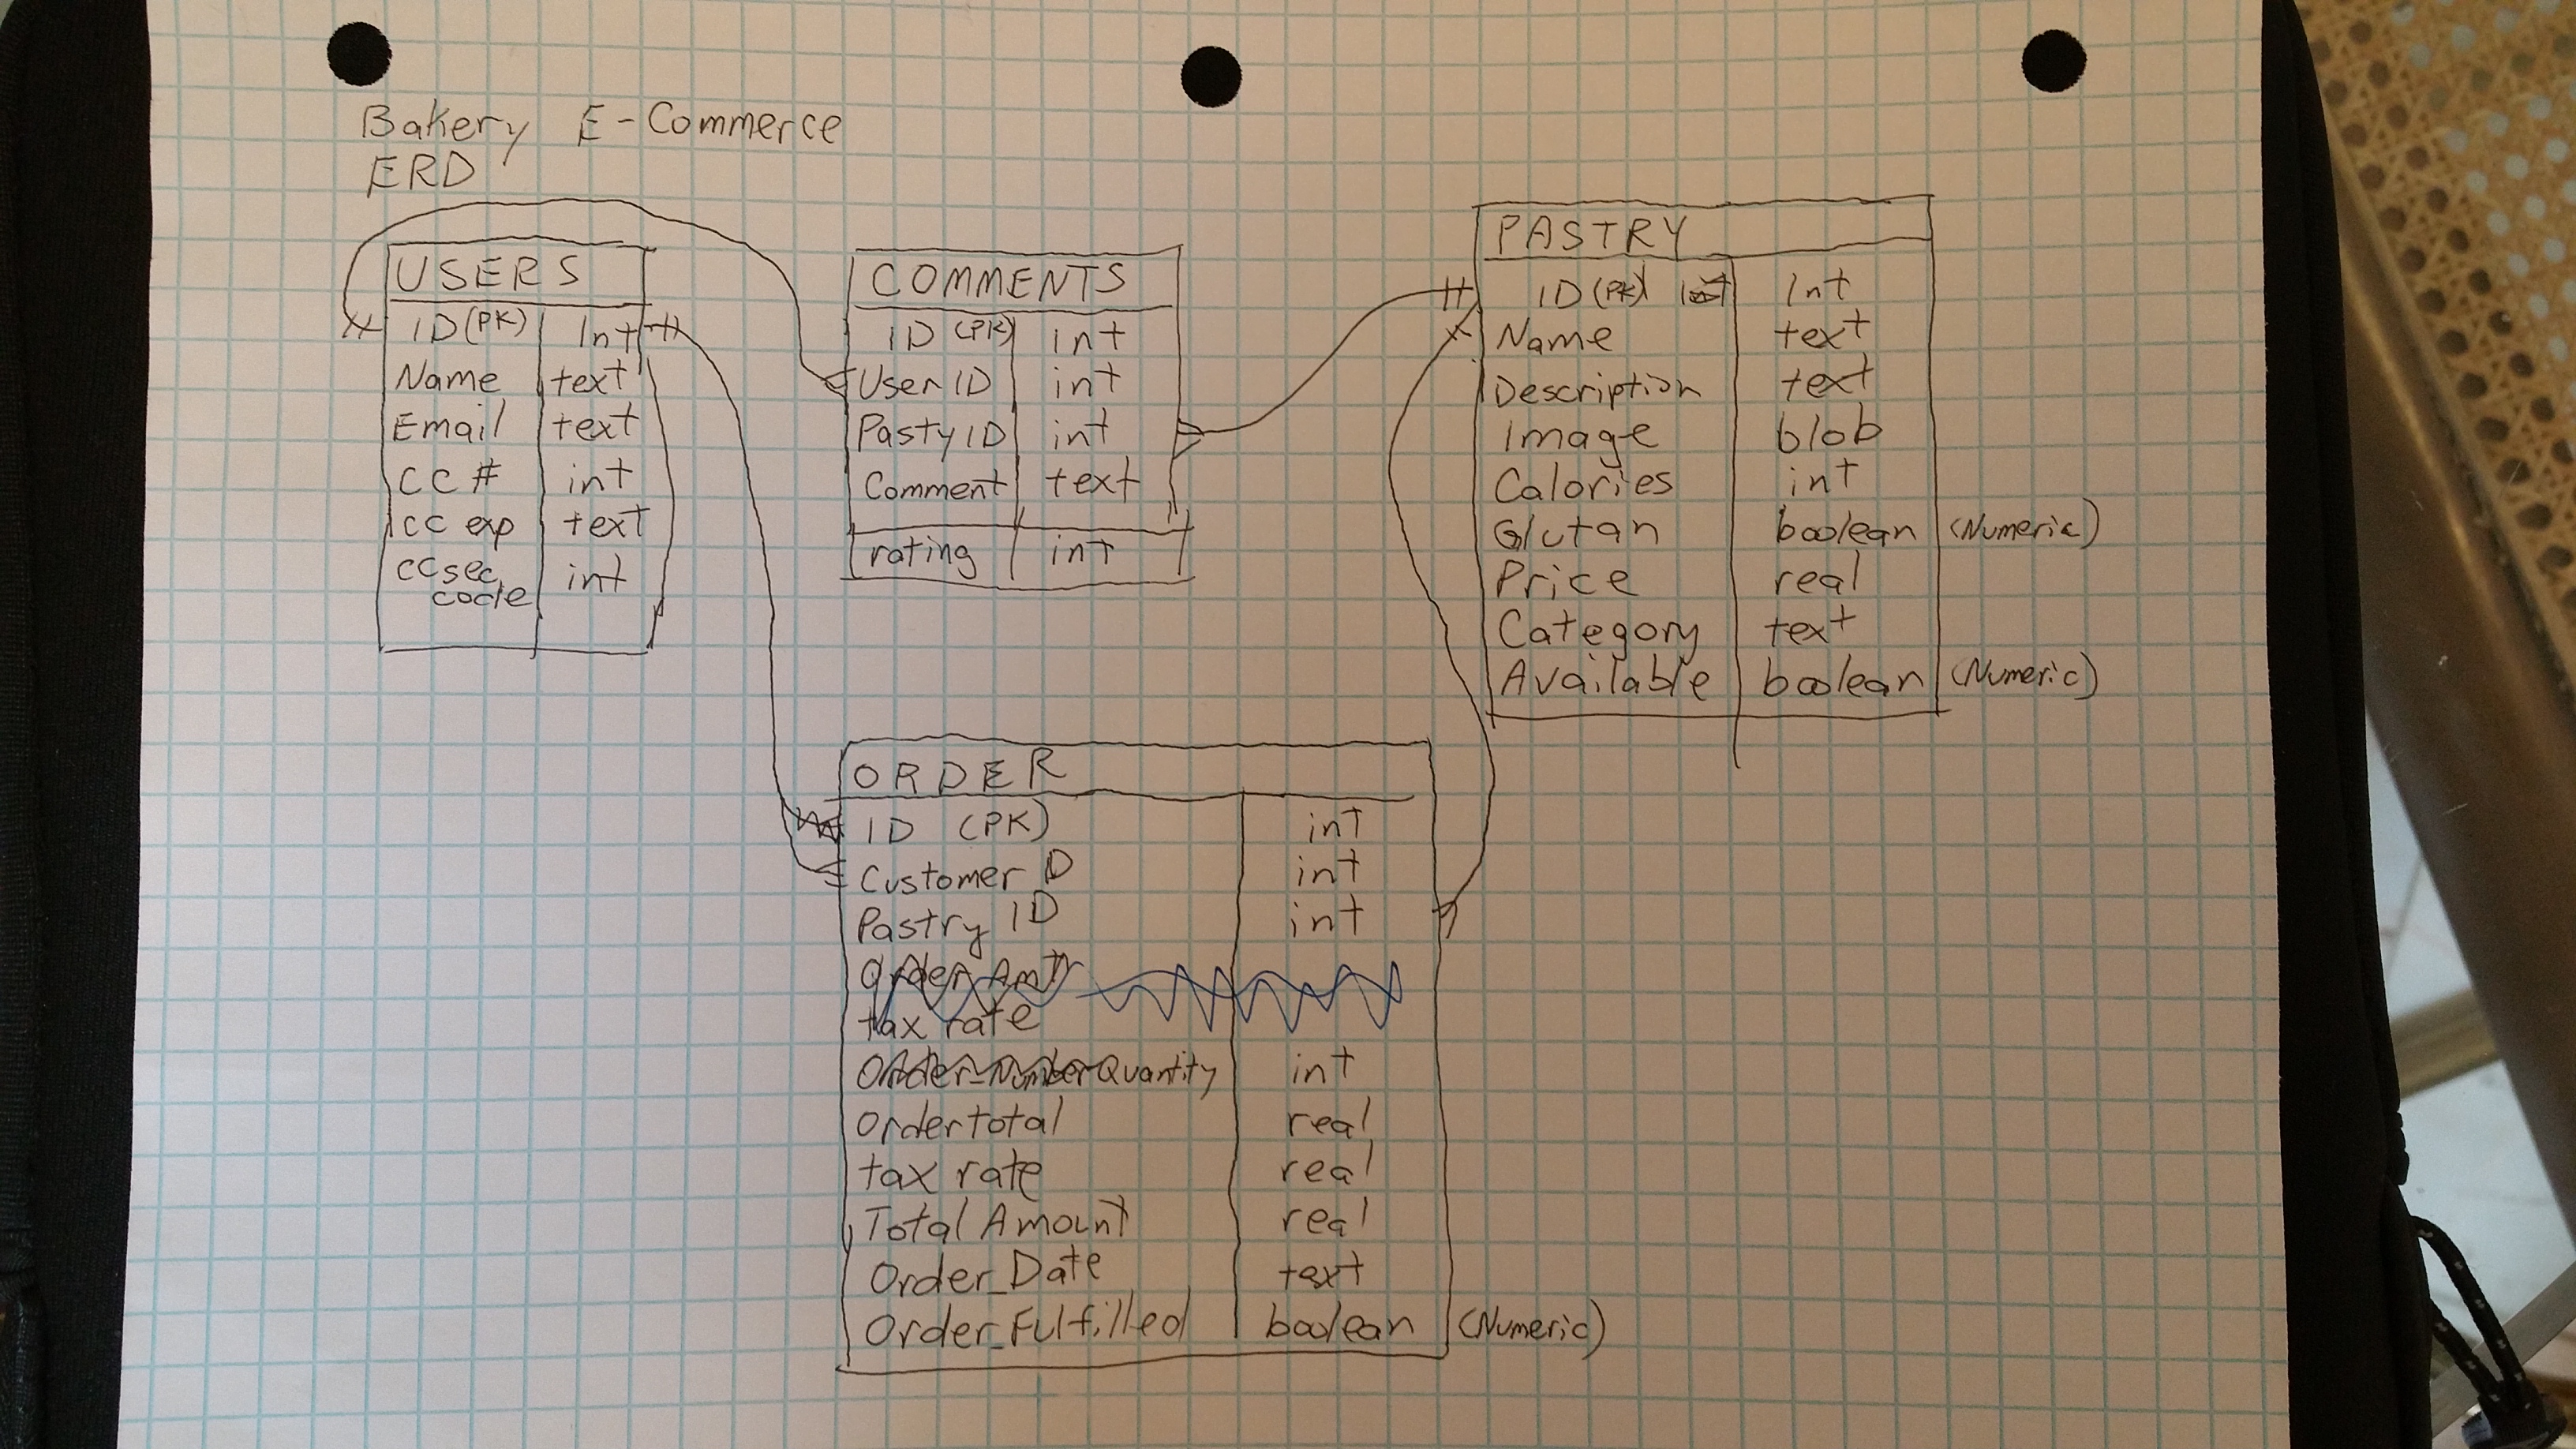 Bakery E-Commerce
ERD
USERS
ID (PK) Int
Name text
Email text
CC # int
CC exp text
CC sec code int
COMMENTS
ID (PK) int
User ID int
Pasty ID int
Comment text
rating int
PASTRY
ID (PK) Int
Name text
Description text
Image blob
Calories int
Glutan boolean (Numeric)
Price real
Category text
Available boolean (Numeric)
ORDER
ID (PK) int
Customer ID int
Pastry ID int
Order Amt
tax rate
Order_Number Quantity int
Ordertotal real
tax rate real
Total Amount real
Order_Date text
Order_Fulfilled boolean (Numeric)